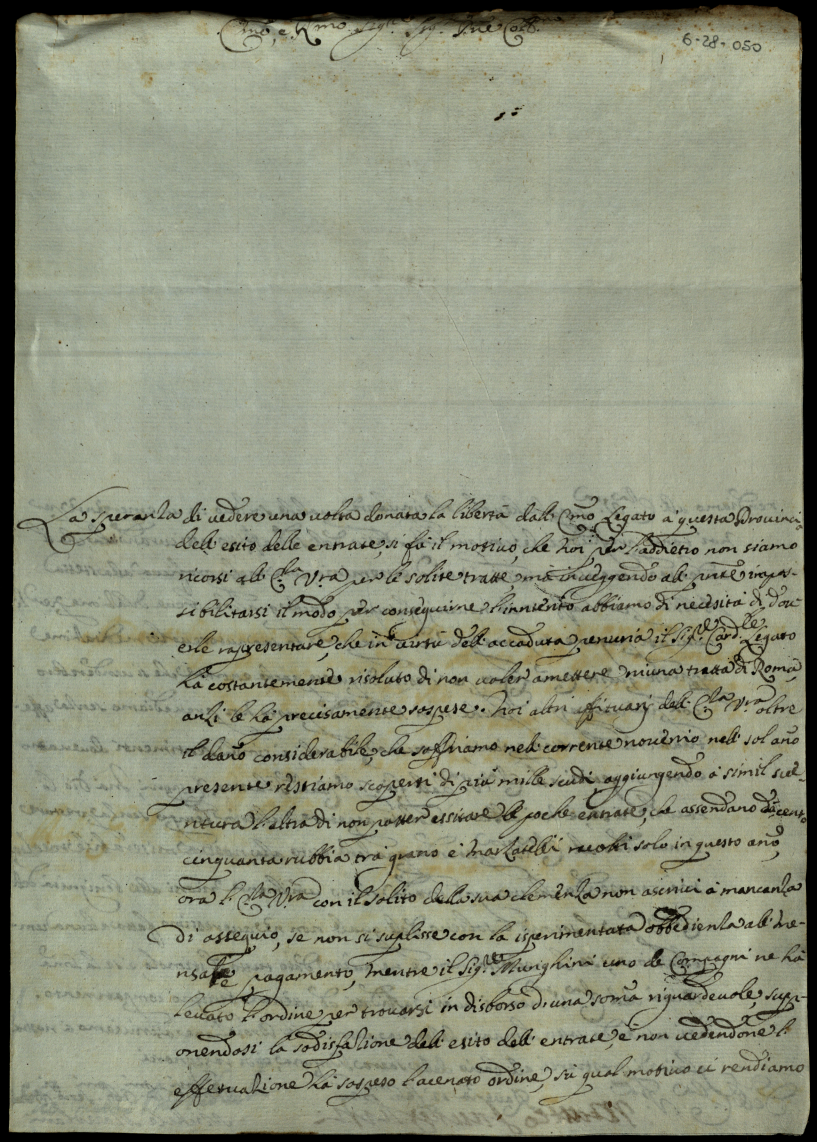 Emo, e Rmo Sigre Sigr Pne Colo
6-28-050
La speranza di vedere una volta donata la libertà dall' Emo Legato a questa Provinci
dell' esito delle entrate, si fà il motivo, che noi per l'addietro non siamo
ricorsi all' Eza Vra per le solite tratte, mà inleggendo all' pnte impos-
sibilitarsi il modo per conseguirne l'inniento abbiamo di necesità di dou-
erle rapresentare, che in virtù dell' accaduta penuria il Sigre Cardle Legato
hà costantemente risoluto di non voler amettere niuna tratta di Roma,
anzi le hà precisamente sospese. Noi altri affituarj dell' Eza Vra oltre
il dano considerabile, che soffriamo nell' corrente novenio nell' sol' ano
presente restiamo scoperti di più mille scudi, aggiungendo a simil scia-
ritura l'altra di non potter essitare le poche entrate, che assendano ducento
cinquanta rubbia trà grano e Marzatelli racolti solo in questo ano,
ora l' Eza Vra con il solito della sua clemenza non ascrivi à mancanza
di assequio, se non si suplisce con la isperimentata obbedienza all' me-
nsale pagamento, mentre il Sigre Munghini uno de Compagni ne hà
levato l'ordine per trovarsi in disborso di una soma riguardevole, supp-
onendosi la sodisfazione dell' esito dell' entrate, e non vedendone l'
effetuazione hà sospeso l'acenato ordine, sù qual motivo ci rendiamo